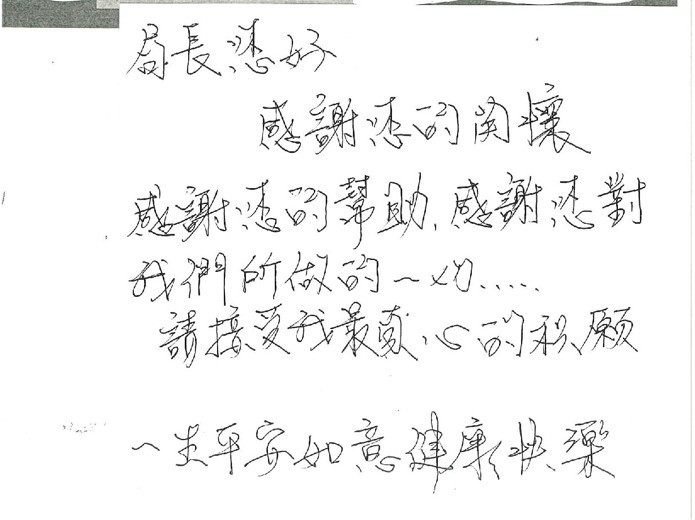 局長您好
感謝您的関懷
感謝您的幫助,感謝您對
我們所做的一切.....
請接受我最真心的祝願
一生平安如意健康快樂